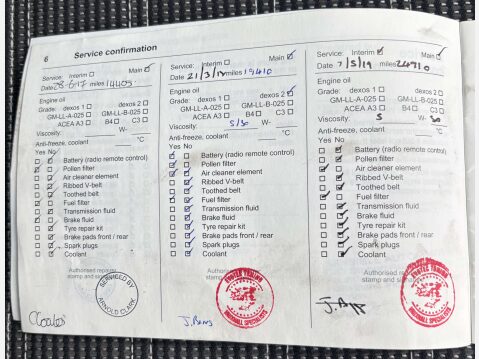 6
Service confirmation
Service: Interim Main
Date 08-6-17 miles 14109
Engine oil
Grade: dexos 1 dexos 2
GM-LL-A-025 GM-LL-B-025
ACEA A3 B4 C3
Viscosity: W-
Anti-freeze, coolant °C
Yes No
Battery (radio remote control)
Pollen filter
Air cleaner element
Ribbed V-belt
Toothed belt
Fuel filter
Transmission fluid
Brake fluid
Tyre repair kit
Brake pads front / rear
Spark plugs
Coolant
Authorised repairer
stamp and
SERVICED BY
ARNOLD CLARK
Service: Interim Main
Date 21/3/18 miles 19410
Engine oil
Grade: dexos 1 dexos 2
GM-LL-A-025 GM-LL-B-025
ACEA A3 B4 C3
Viscosity: 5/30 W-
Anti-freeze, coolant °C
Yes No
Battery (radio remote control)
Pollen filter
Air cleaner element
Ribbed V-belt
Toothed belt
Fuel filter
Transmission fluid
Brake fluid
Tyre repair kit
Brake pads front / rear
Spark plugs
Coolant
VAUXHALL SPECIALISTS
Service: Interim Main
Date 7/5/19 miles 24710
Engine oil
Grade: dexos 1 dexos 2
GM-LL-A-025 GM-LL-B-025
ACEA A3 B4 C3
Viscosity: 5 W- 30
Anti-freeze, coolant °C
Yes No
Battery (radio remote control)
Pollen filter
Air cleaner element
Ribbed V-belt
Toothed belt
Fuel filter
Transmission fluid
Brake fluid
Tyre repair kit
Brake pads front / rear
Spark plugs
Coolant
VAUXHALL SPECIALISTS